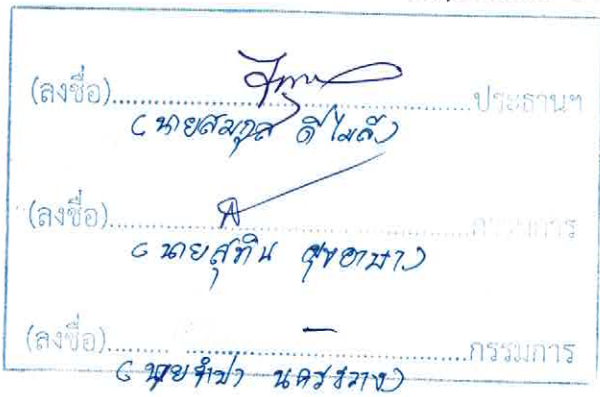 (ลงชื่อ)......................................................ประธานฯ
(นายสมกุล ดีไมล์)
(ลงชื่อ)......................................................กรรมการ
(นายสุทิน
(ลงชื่อ)......................................................กรรมการ
(นายจำปา นครขวาง)